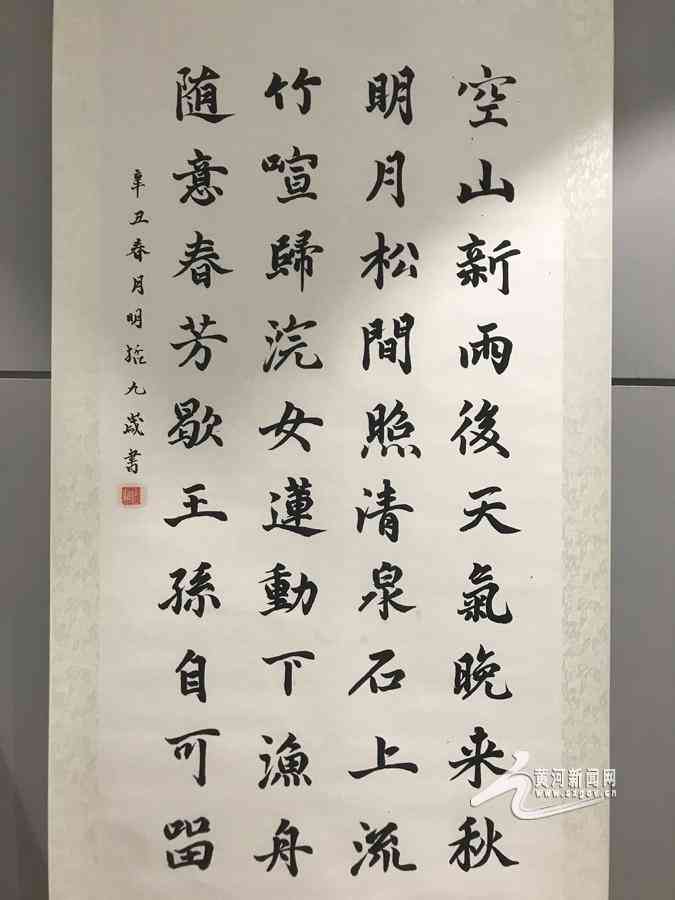 空山新雨後天氣晚来秋
明月松間照清泉石上流
竹喧歸浣女蓮動下漁舟
随意春芳歇王孫自可留
辛丑春月明哲九歲書
黄河新闻网
www.sxgov.cn